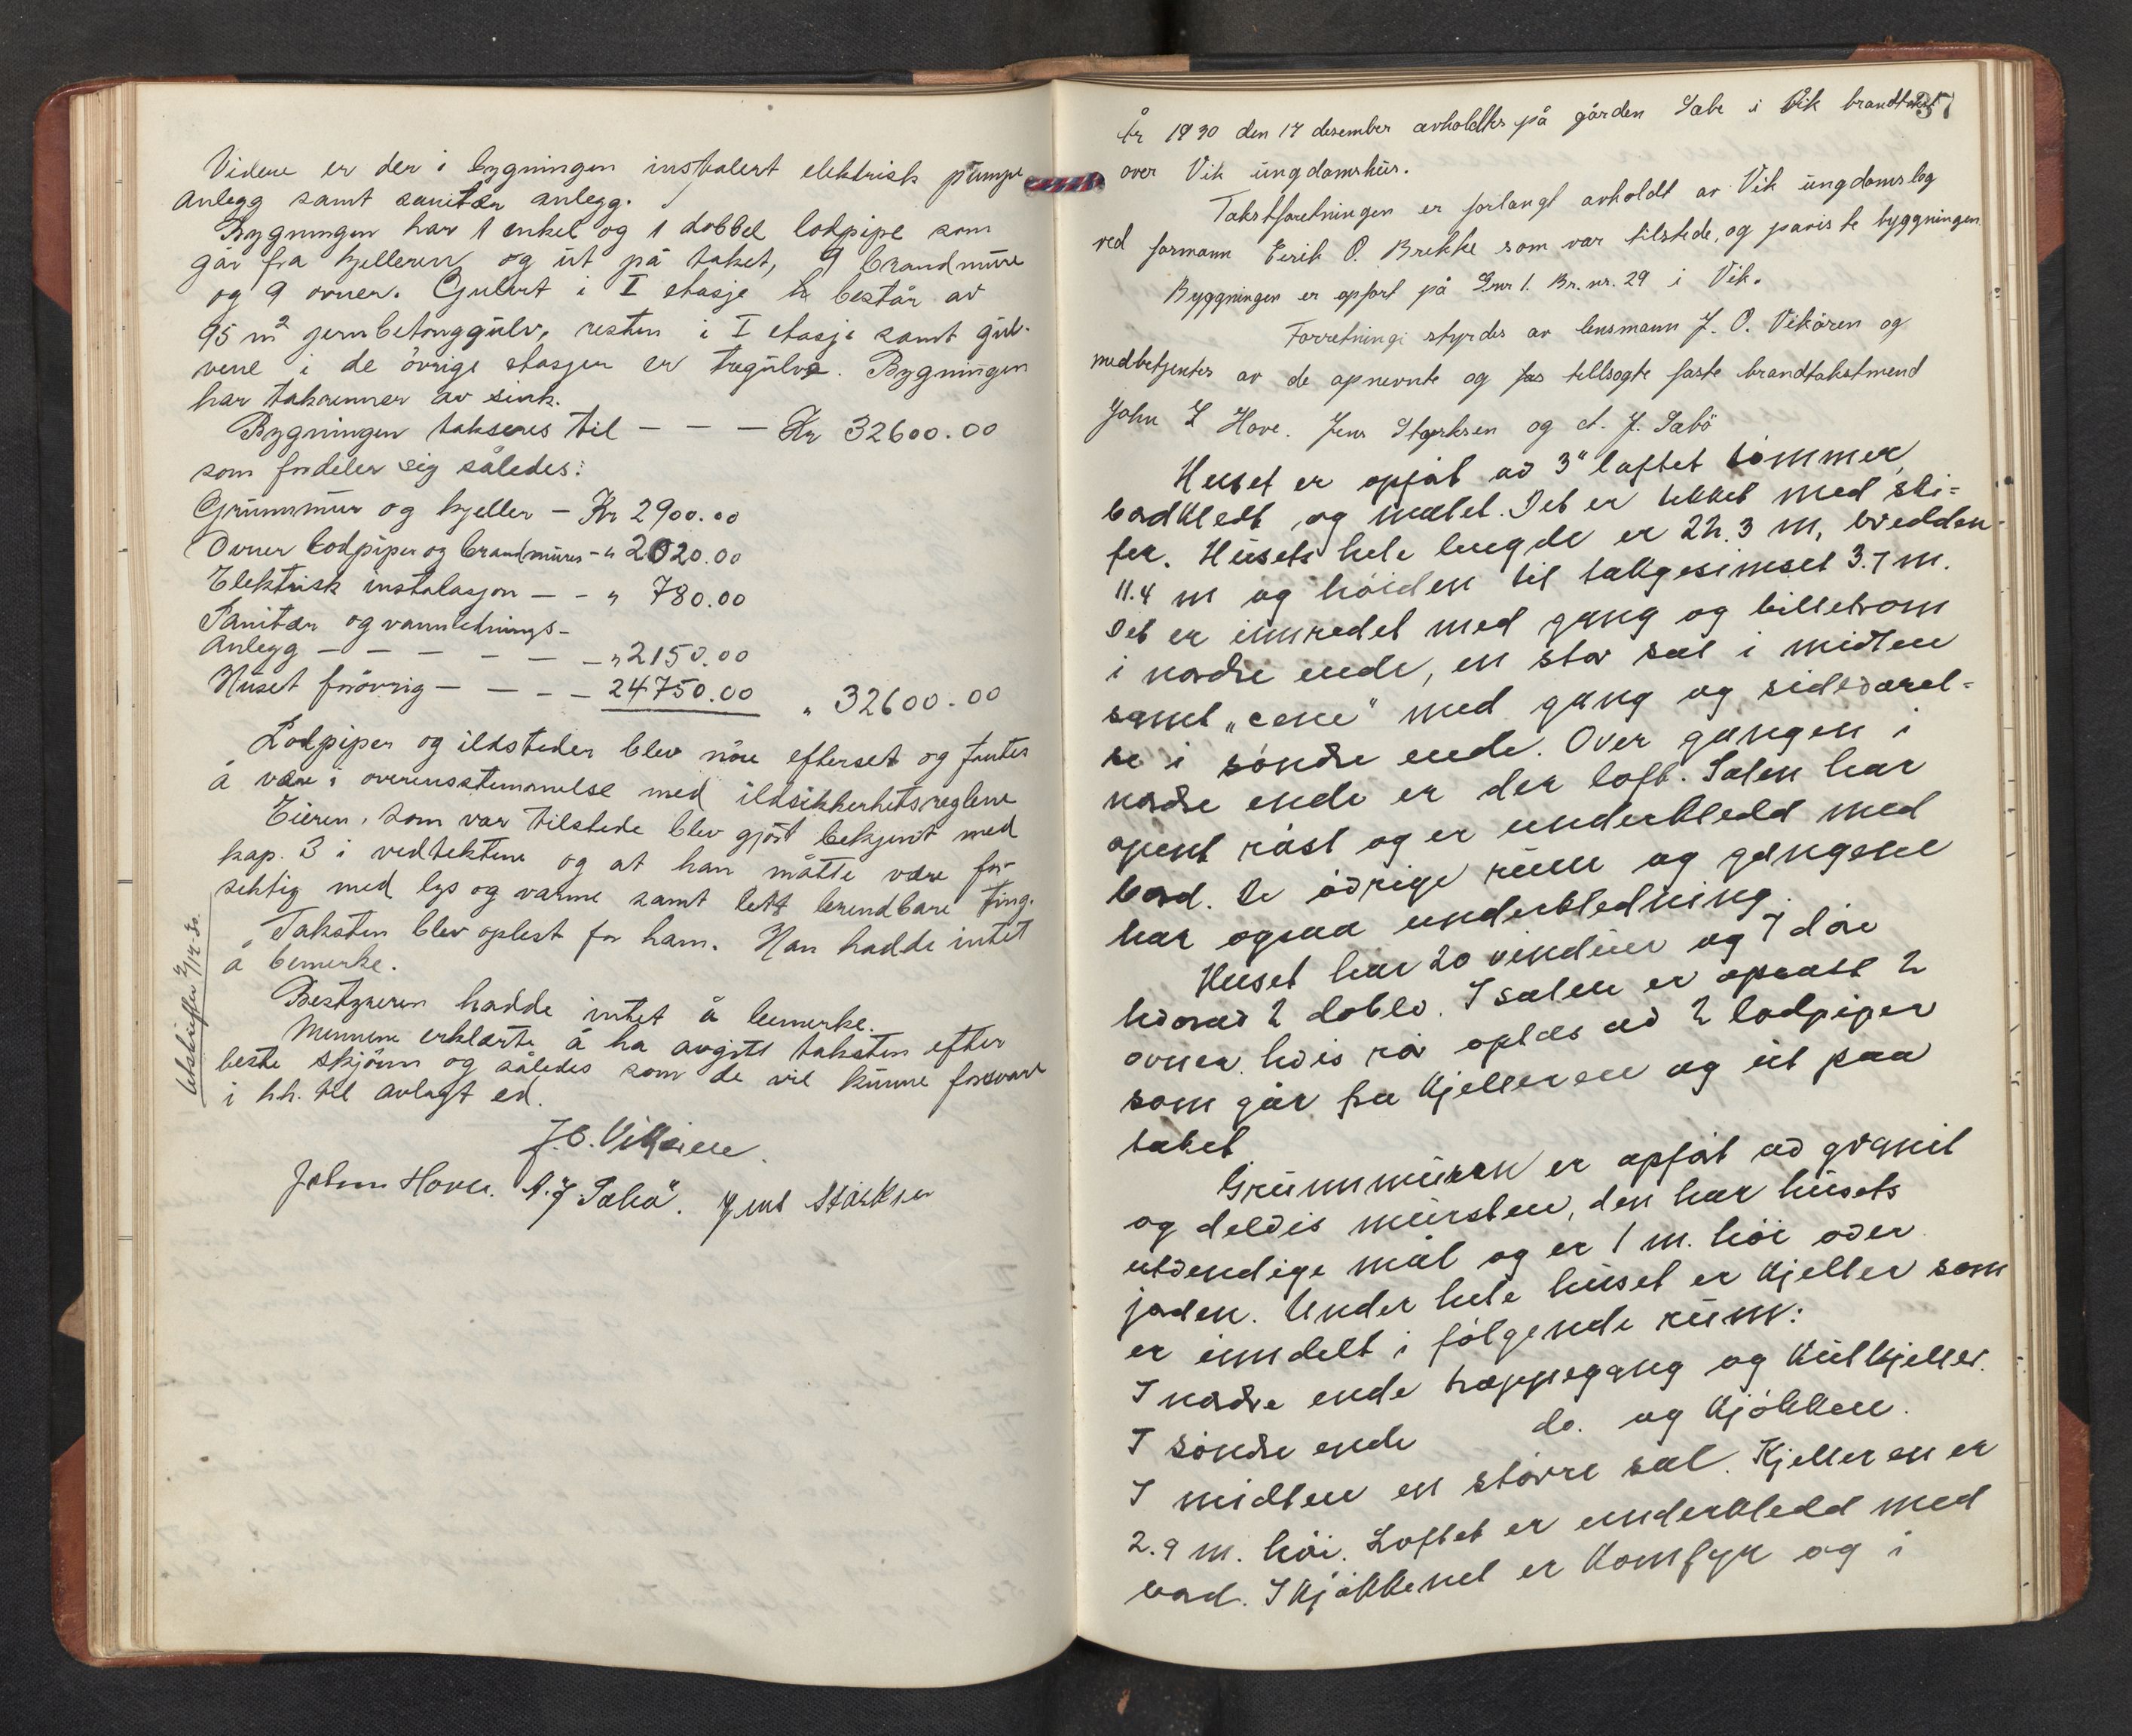 Videre er der i bygningen instalert elektrisk pumpe
anlegg samt sanitær anlegg.
Bygningen har 1 enkel og 1 dobbel lodpipe som
går fra kjelleren og ut på taket, 9 brandmure
og 9 ovner. Gulvet i I etasje består av
95 m² jernbetonggulv, resten i I etasje samt gul-
vene i de övrige etasjer er tregulve. Bygningen
har takrenner av sink.
Bygningen takseres til – – – Kr 32600.00
som fordeler sig således:
Grunnmur og kjeller – Kr 2900.00
Ovner lodpiper og brandmurer – " 2020.00
Elektrisk instalasjon – – " 780.00
Sanitær og vannlednings-
anlegg – – – – – – " 2150.00
Huset forövrig – – – – 24750.00 " 32600.00
Lodpiper og ildsteder blev nöie efterset og funtes
å være i overensstemmelse med ildsikkerhetsreglene
Eieren, som var tilstede blev gjort bekjent med
kap. 3 i vedtektene og at han måtte være for-
siktig med lys og varme samt lett brendbare ting.
Taksten blev oplest for ham. Han hadde intet
å bemerke.
Bestyreren hadde intet å bemerke.
Mennene erklærte å ha avgitt taksten efter
beste skjönn og således som de vil kunne forsvare
i h.h. til avlagt ed.
J.O. Vikören.
John Hove. A. J. Sabö. Jens Störksen
37
År 1930 den 17 desember avholdtes på gården Sabe i Vik brandtakst
over Vik ungdomshus.
Takstforetningen er forlangt avholdt av Vik ungdomslag
ved formann Eirik O. Brekke som var tilstede, og paviste byggningen.
Byggningen er opfort på Gnr 1. Br.nr. 29 i Vik.
Forretningi styrdes av lensmann J. O. Vikören og
medbetjentes av de opnevnte og fas tillsagte faste brandtakstmend
John L Hove. Jens Størksen og A. J. Sabö
Huset er opfört av 3" laftet tömmer,
bordkledt og malet. Det er tekket med ski=
fer. Husets hele lengde er 22.3 m, bredden
11.4 m og höiden til takgesimset 3.7 m.
Det er innredet med gang og billetrom
i nordre ende, en stor sal i midten
samt "cene" med gang og sideværel=
se i söndre ende. Over gangen i
nordre ende er der loft. Salen har
opent röst og er underkledd med
bord. De övrige rum og gangene
har ogsaa underkledning.
Huset har 20 vinduer og 7 döre
hvorav 2 doble. I salen er opsatt 2
ovner hvis rör optas av 2 lodpiper
som går fra kjelleren og ut paa
taket.
Grunnmuren er opfört av granit
og delvis mursten, den har husets
utvendige mål og er 1 m. höi over
jorden. Under hele huset er kjeller som
er inndelt i fölgende rum:
I nordre ende trappegang og kulkjeller.
I söndre ende do. og kjökken.
I midten en större sal. Kjelleren er
2.9 m. höi. Loftet er underkledd med
bord. I kjökkenet er komfyr og i